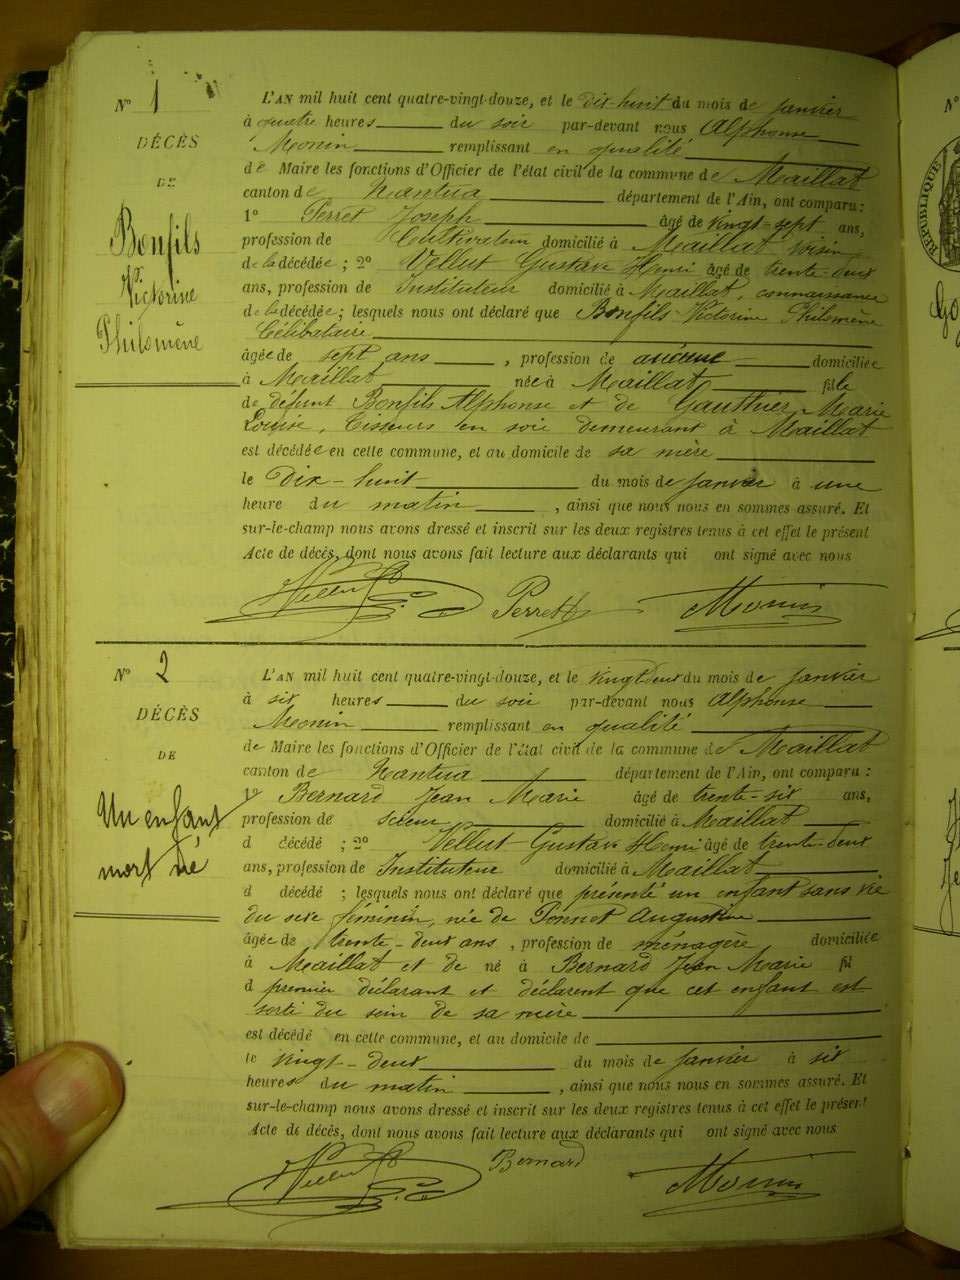 N° 1
DÉCÈS
DE
Bonfils
Victorine
Philomène
L'AN mil huit cent quatre-vingt-douze, et le dix-huit du mois de janvier
à quatre heures du soir par-devant nous Alphonse
Monin remplissant en qualité
de Maire les fonctions d'Officier de l'état civil de la commune de Maillat
canton de Nantua département de l'Ain, ont comparu :
1° Perret Joseph âgé de vingt-sept ans,
profession de Cultivateur domicilié à Maillat voisin
de la décédée ; 2° Vellut Gustave Henri âgé de trente-deux
ans, profession de Instituteur domicilié à Maillat, connaissance
de la décédée ; lesquels nous ont déclaré que Bonfils Victorine Philomène
Célibataire
âgée de sept ans, profession de aucune domiciliée
à Maillat née à Maillat fille
de défunt Bonfils Alphonse et de Gauthier Marie
Louise, Tisseurs en soie demeurant à Maillat
est décédée en cette commune, et au domicile de sa mère
le Dix-huit du mois de janvier à une
heure du matin, ainsi que nous nous en sommes assuré. Et
sur-le-champ nous avons dressé et inscrit sur les deux registres tenus à cet effet le présent
Acte de décès, dont nous avons fait lecture aux déclarants qui ont signé avec nous
Vellut Perret Monin
N° 2
DÉCÈS
DE
Un enfant
mort né
L'AN mil huit cent quatre-vingt-douze, et le vingt deux du mois de janvier
à six heures du soir par-devant nous Alphonse
Monin remplissant en qualité
de Maire les fonctions d'Officier de l'état civil de la commune de Maillat
canton de Nantua département de l'Ain, ont comparu :
1° Bernard Jean Marie âgé de trente-six ans,
profession de scieur domicilié à Maillat
d décédé ; 2° Vellut Gustave Henri âgé de trente-deux
ans, profession de Instituteur domicilié à Maillat
d décédé ; lesquels nous ont déclaré que présenté un enfant sans vie
du sexe féminin, née de Ponnet Augustine
âgée de trente-deux ans, profession de ménagère domiciliée
à Maillat et de né à Bernard Jean Marie fil
d premier déclarant et déclarent que cet enfant est
sorti du sein de sa mère
est décédé en cette commune, et au domicile de
le vingt-deux du mois de janvier à six
heures du matin, ainsi que nous nous en sommes assuré. Et
sur-le-champ nous avons dressé et inscrit sur les deux registres tenus à cet effet le présent
Acte de décès, dont nous avons fait lecture aux déclarants qui ont signé avec nous
Vellut Bernard Monin